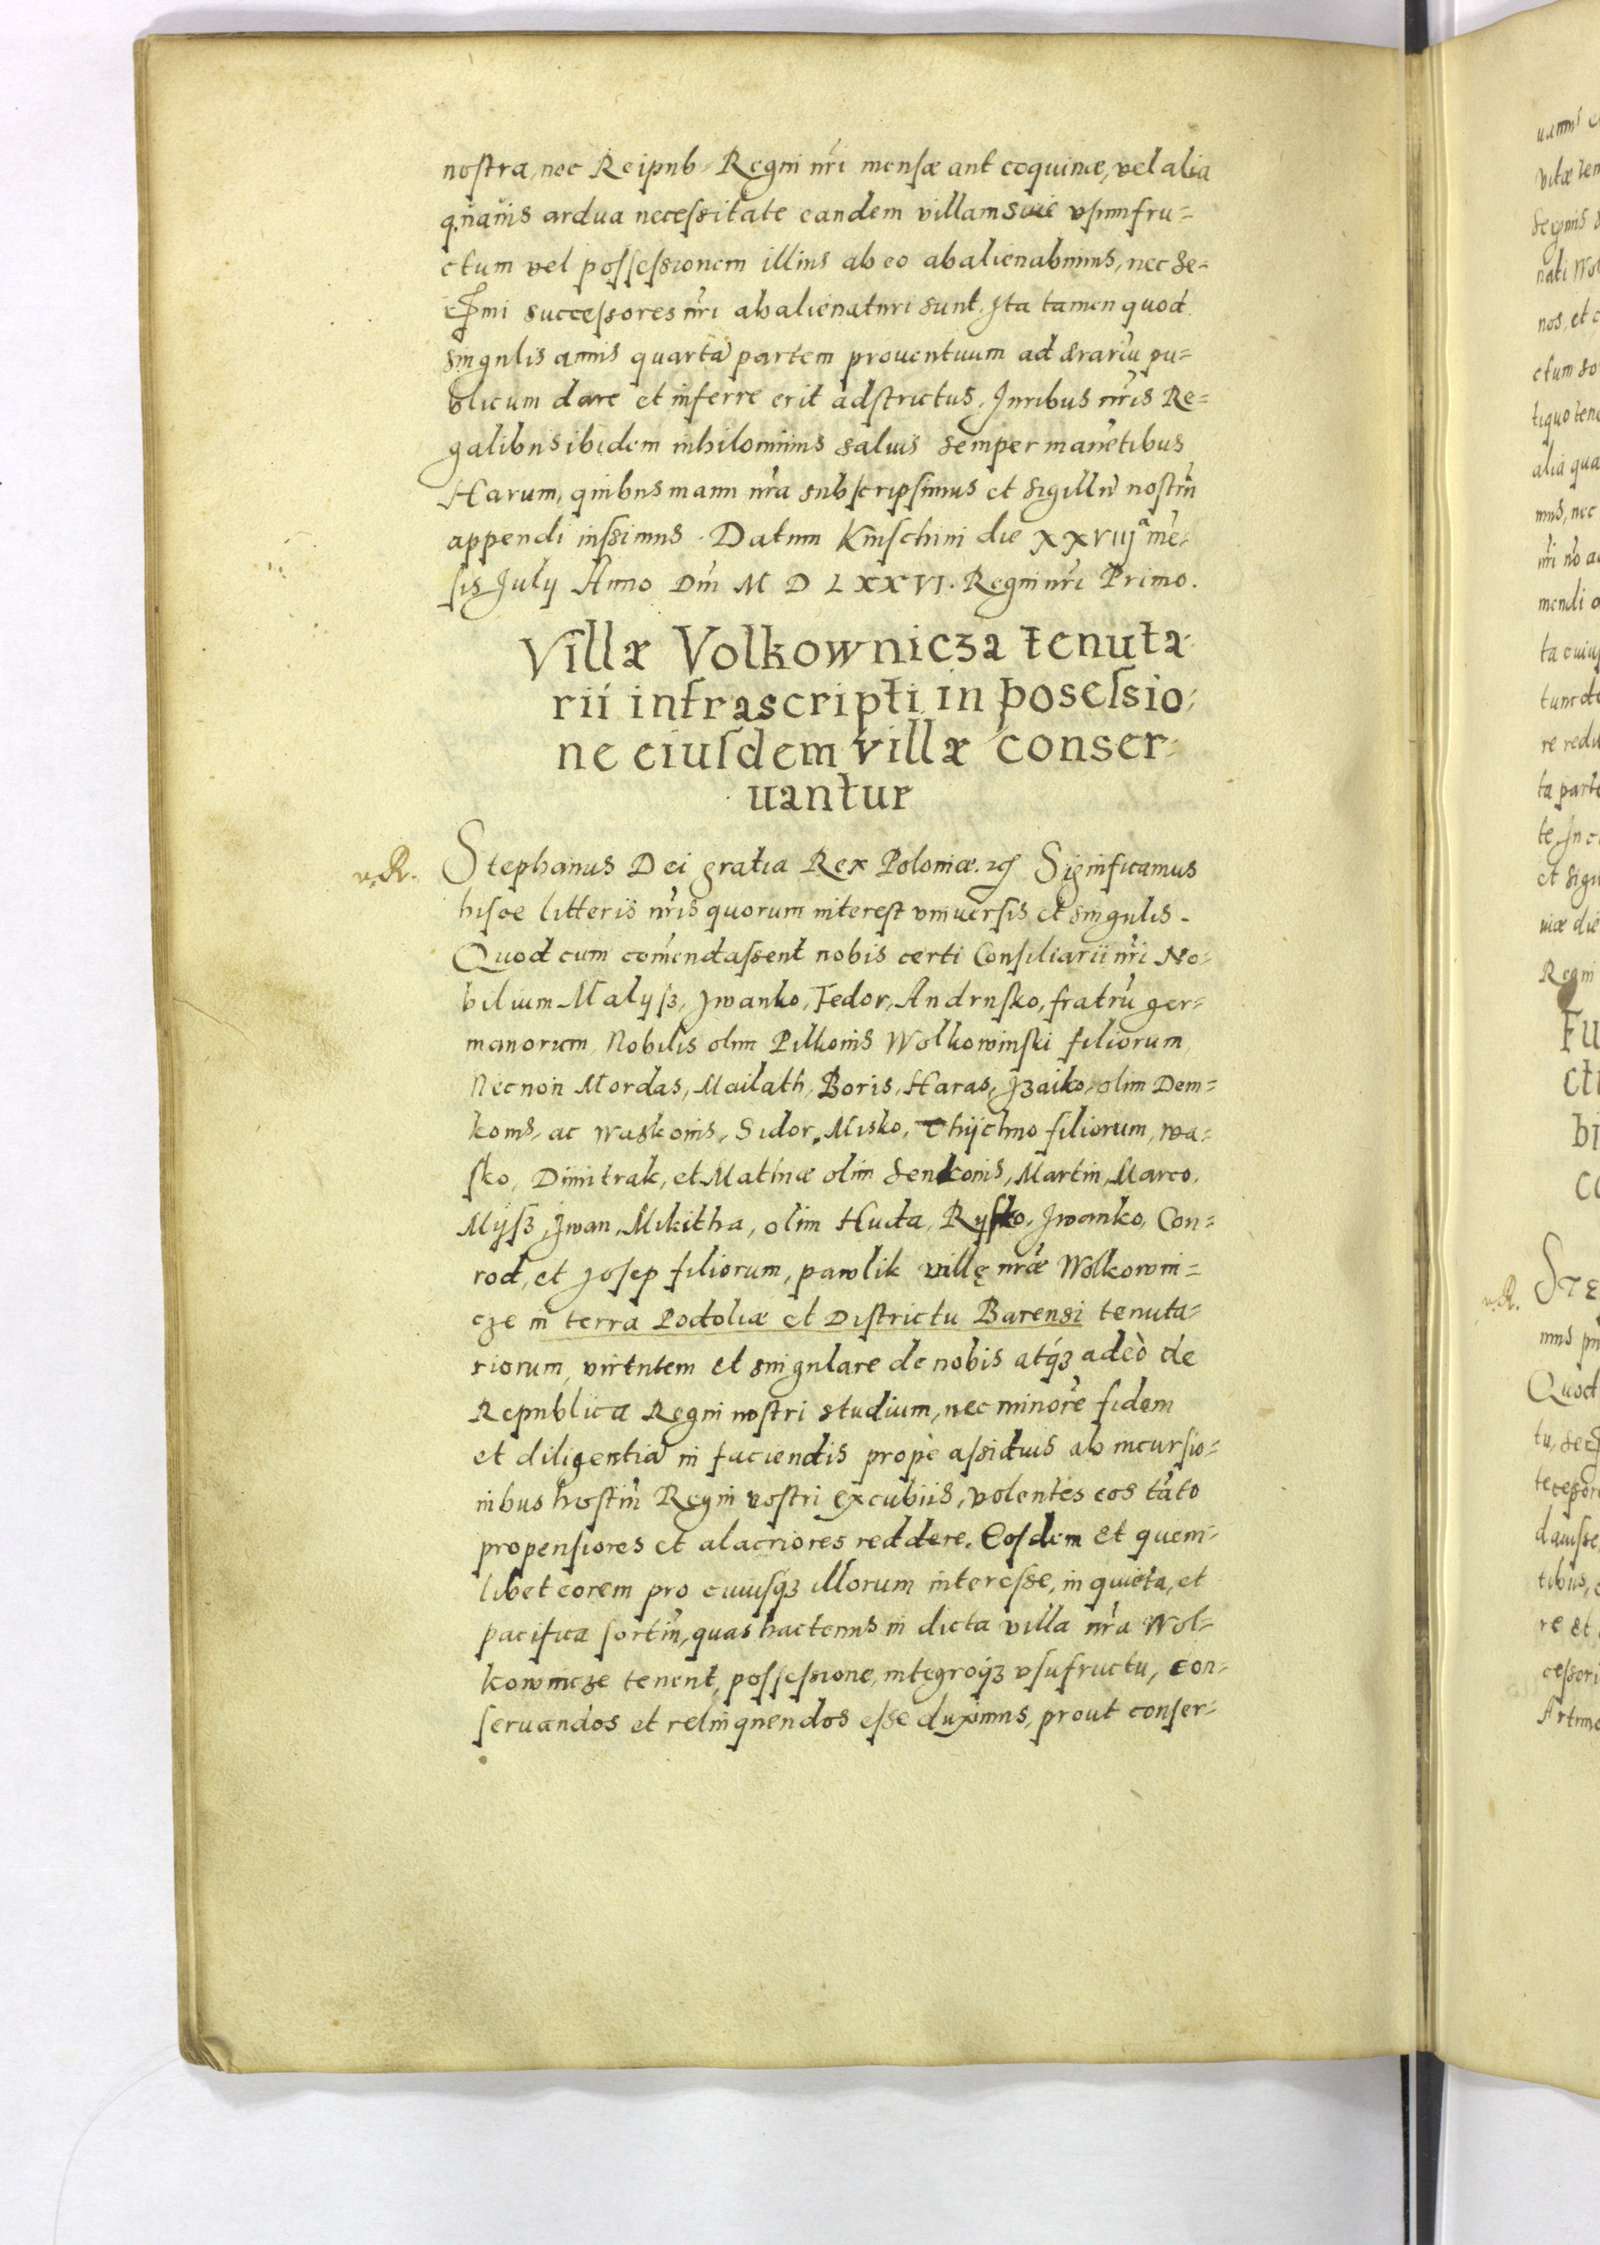 nostra, nec Reipub. Regni nr̃i mensæ aut coquinæ, vel alia
quãuis ardua necessitate eandem villam siue vsumfru-
ctum vel possessionem illius ab eo abalienabimus, nec se-
r̃mi successores nr̃i abalienaturi sunt. Ita tamen quod
singulis annis quartã partem prouentuum ad ærariũ pu-
blicum dare et inferre erit adstrictus. Juribus nr̃is Re-
galibus ibidem nihilominus saluis semper manẽtibus
Harum, quibus manu nr̃a subscripsimus et sigillũ nostrũ
appendi iussimus. Datum Knischini die XXVIIJª mẽ-
sis Julij Anno Dñi M D LXXVI. Regni nr̃i Primo.
Villæ Volkownicza tenuta-
rii infrascripti in posessio-
ne eiusdem villæ conser-
uantur
v. R. Stephanus Dei gratia Rex Poloniæ. Significamus
hisce litteris nr̃is quorum interest vniuersis et singulis.
Quod cum com̃endassent nobis certi Consiliarii nr̃i No-
bilium Malysz, Jwanko, Fedor, Andrusko, fratrũ ger-
manorum, Nobilis olim Pilkonis Wolkowinski filiorum
Necnon Mordas, Mailath, Boris, Haras, Jzaiko, olim Dem-
konis, ac Waskonis, Sidor, Misko, Chychno filiorum, wa-
sko, Dimitrak, et Mathæ olim Senkonis, Martin, Marco,
Mysz, Jwan, Mikitha, olim Huda, Rysko, Jwanko, Con-
rod, et Josep filiorum, pawlik villę nr̃æ Wolkowni-
cze in terra Podoliæ et Districtu Barensi tenuta-
riorum, virtutem et singulare de nobis atq́ꝫ adeò de
Republica Regni nostri studium, nec minorẽ fidem
et diligentiã in faciendis propè assiduis ab incursio-
nibus hostiũ Regni nostri excubiis, volentes eos tãto
propensiores et alacriores reddere. Eosdem et quem-
libet eorem pro cuiusq́ꝫ illorum interesse, in quieta, et
pacifica sortiũ, quas hactenus in dicta villa nr̃a Wol-
kownicze tenent, possessione, integroq́ꝫ vsufructu, con-
seruandos et relinquendos esse duximus, prout conser-